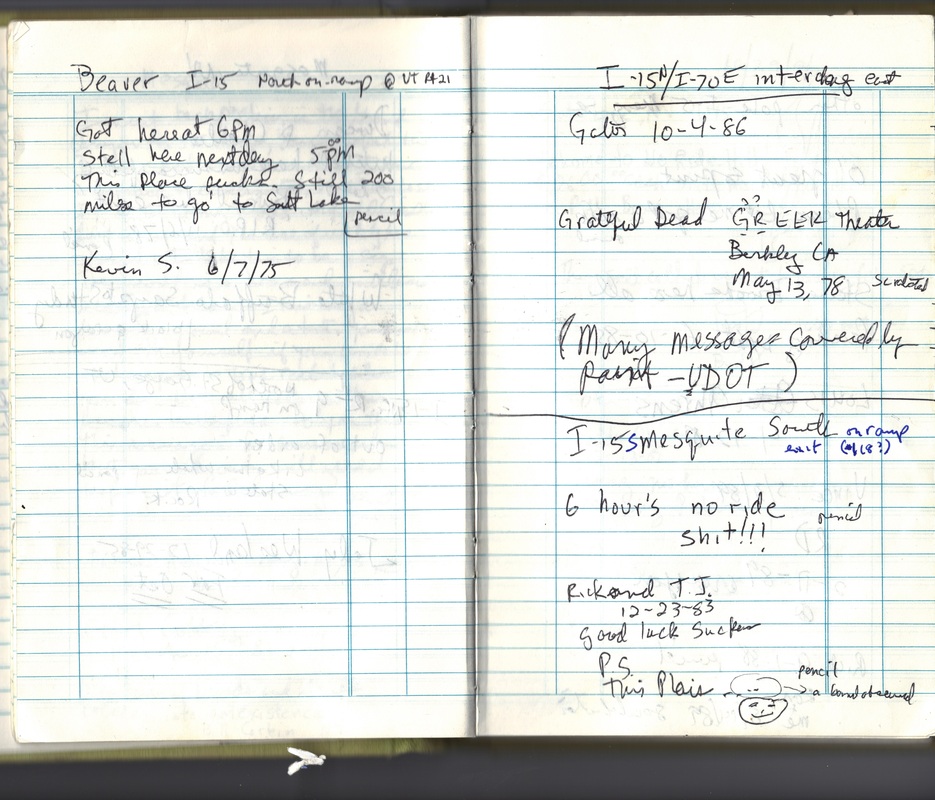 Beaver I-15 North on-ramp @ UT Rt 21
Got here at 6 PM
Stell here next day 5 PM
This Place sucks. Still 200
milse to go to Salt Lake
pencil
Kevin S. 6/7/75
I-15N/I-70E east
10-4-86
Grateful Dead GREEK Theater
Berkley CA
May 13, 78
(Many messages covered by
paint - UDOT)
I-15S Mesquite South on ramp
exit
6 hour's no ride pencil
shit!!!
Rick and T.J.
12-23-83
Good luck Sucker
P.S.
This Plais
pencil
a